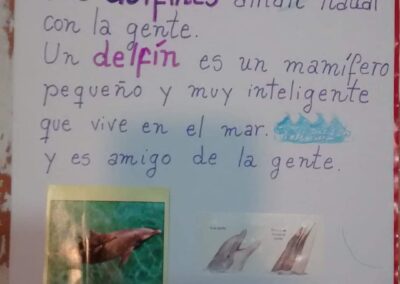 delfines aman nadar
con la gente.
Un delfín es un mamífero
pequeño y muy inteligente
que vive en el mar.
y es amigo de la gente.